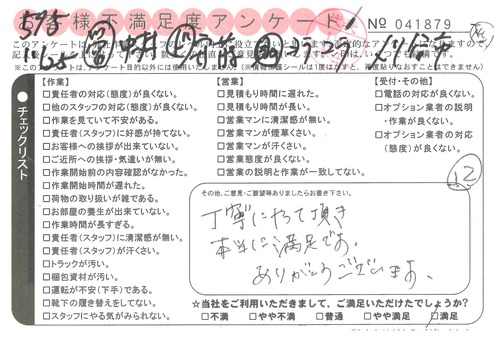 お客様不満足度アンケート
No 041879
【作業】
□責任者の対応(態度)が良くない。
□他のスタッフの対応(態度)が良くない。
□作業を見ていて不安がある。
□責任者(スタッフ)に好感が持てない。
□お客様への挨拶が出来ていない。
□ご近所への挨拶・気遣いが無い。
□作業開始前の内容確認がなかった。
□作業開始時間が遅れた。
□荷物の取り扱いが雑である。
□お部屋の養生が出来ていない。
□作業時間が長すぎる。
□責任者(スタッフ)に清潔感が無い。
□責任者(スタッフ)が汗くさい。
□トラックが汚い。
□梱包資材が汚い。
□運転が不安(下手)である。
□靴下の履き替えをしてない。
□スタッフにやる気がみられない。
【営業】
□見積もり時間に遅れた。
□見積もり時間が長い。
□営業マンに清潔感が無い。
□営業マンが煙草くさい。
□営業マンが汗くさい。
□営業態度が良くない。
□営業の説明と作業が一致してない。
【受付・その他】
□電話の対応が良くない。
□オプション業者の説明
・作業が良くない。
□オプション業者の対応
(態度)が良くない。
チェックリスト
12
その他、ご意見・ご要望等ありましたらお書き下さい。
丁寧にやって頂き
本当に満足です。
ありがとうございます。
☆当社をご利用いただきまして、ご満足いただけたでしょうか?
□不満 □やや不満 □普通 □やや満足 □満足